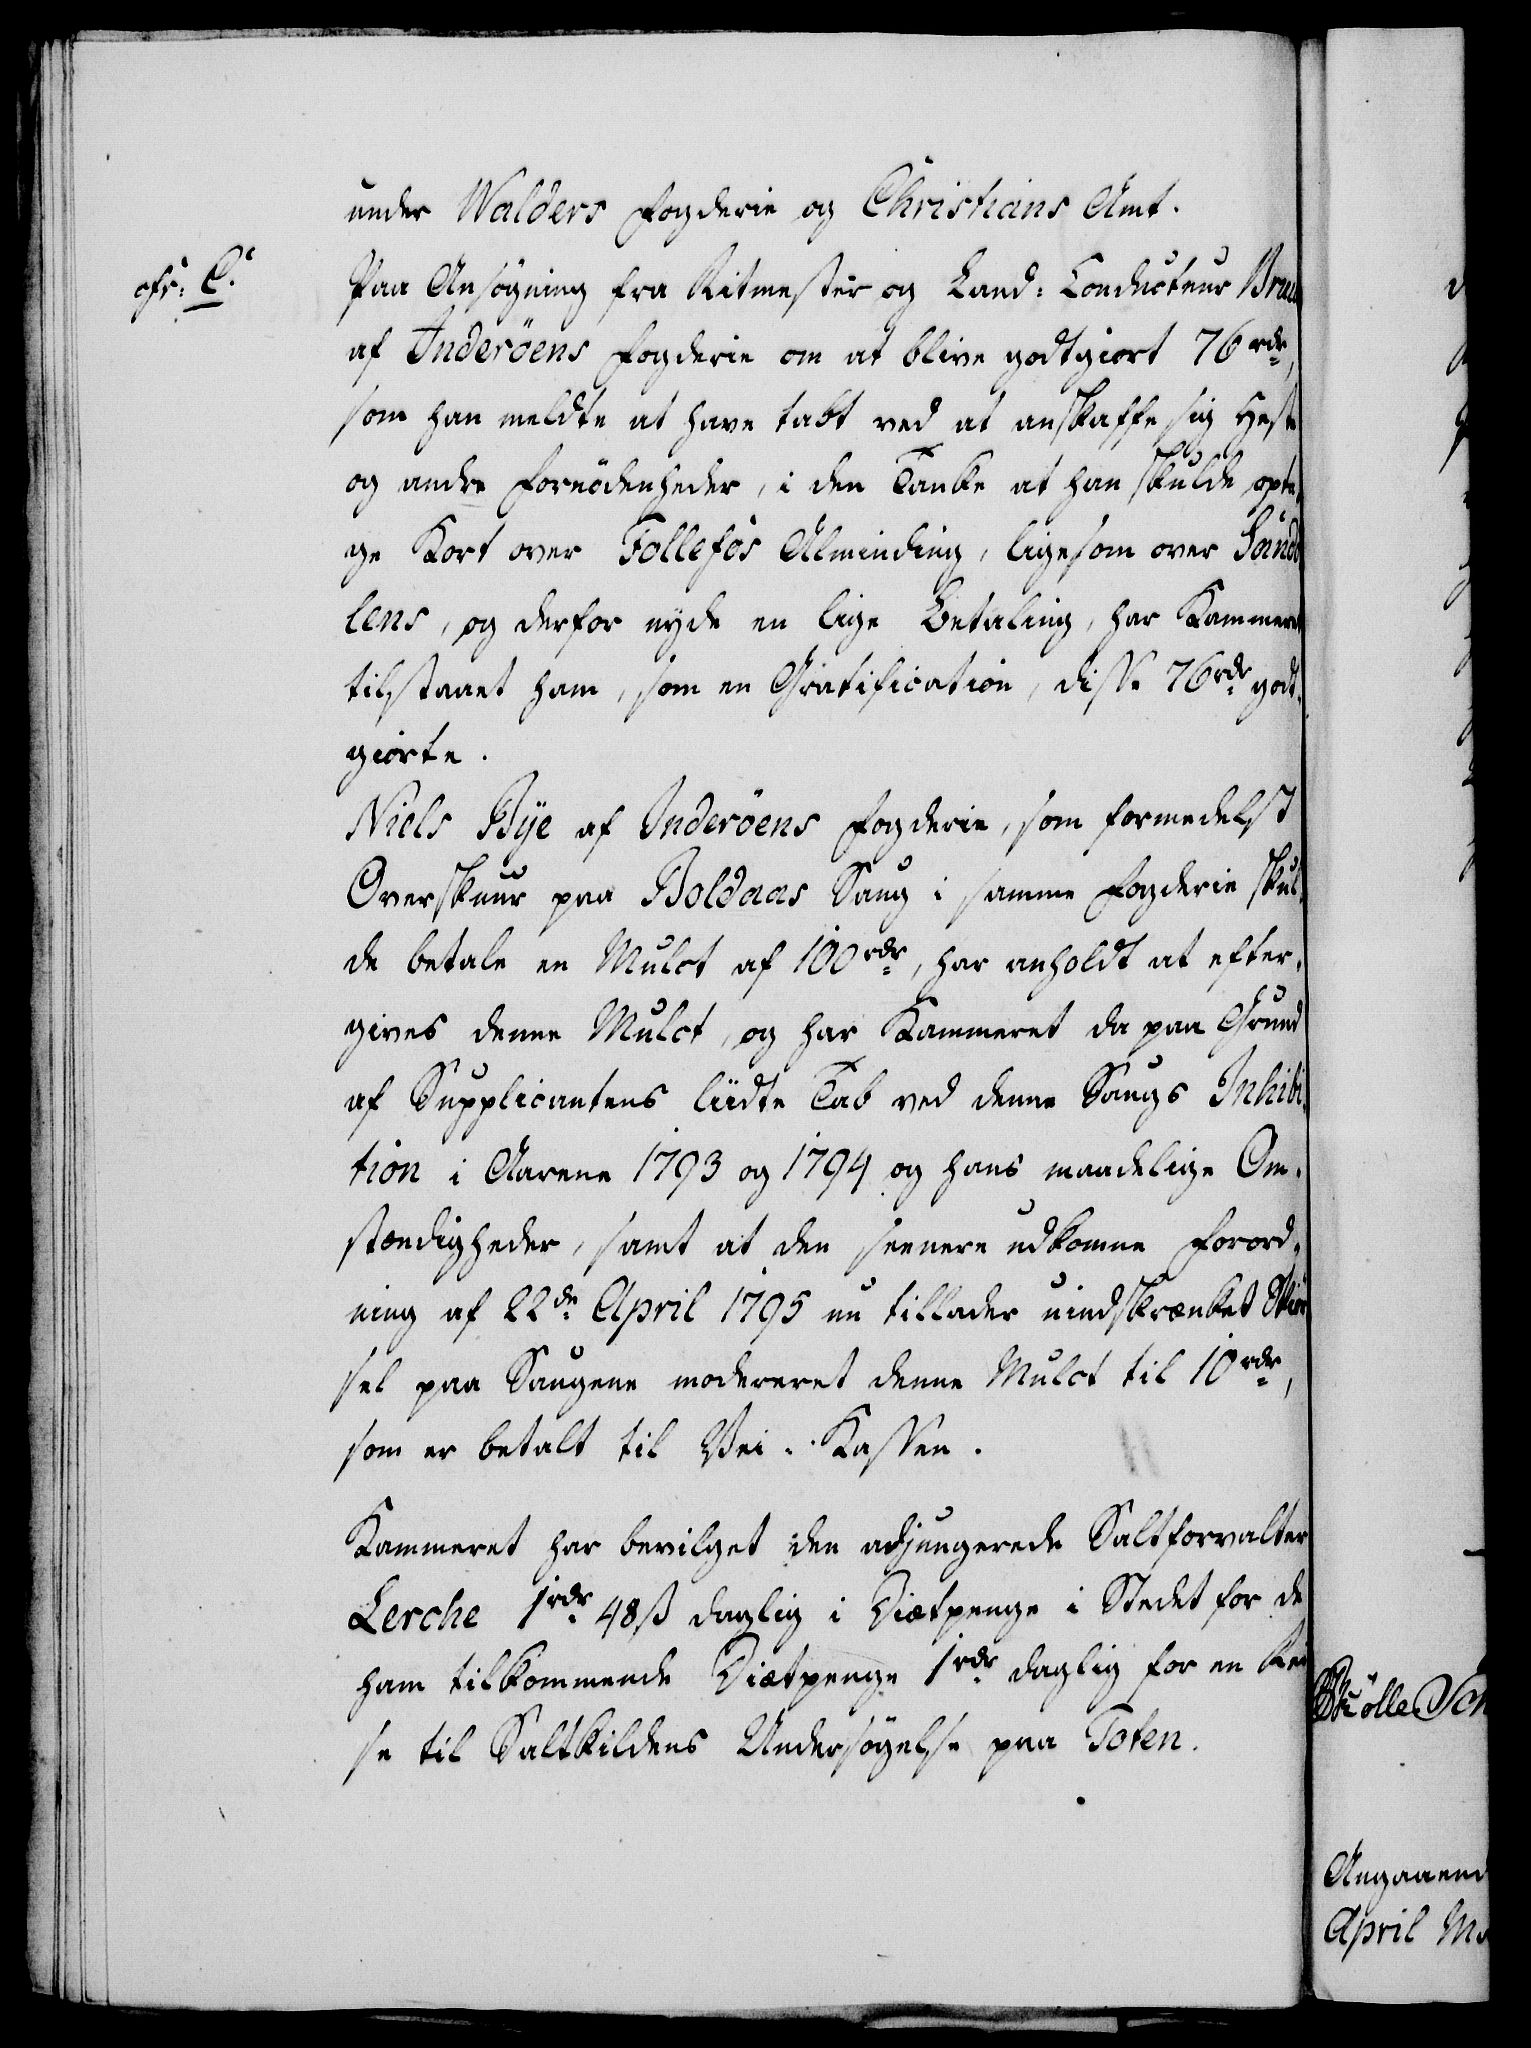 under Walders Fogderie og Christians Amt.
cfr: C.
Paa Ansøgning fra Ritmester og Land-Conducteur Bruun
af Inderöens Fogderie om at blive godtgiort 76 rdr,
som han meldte at have tabt ved at anskaffe sig Heste
og andre Fornødenheder, i den Tanke at han skulde opta-
ge Kort over Follefös Alminding, ligesom over Sand
lens, og derfor nyde en lige Betaling, har Kammeret
tilstaaet ham, som en Gratification, disse 76 rdr godt-
giorte.
Niels Bye af Inderöens Fogderie, som formedelst
Overskuur paa Boldaas Saug i samme Fogderie skul-
de betale en Mulct af 100 rdr, har anholdt at efter-
gives denne Mulct, og har Kammeret da paa Grund
af Supplicantens liidte Tab ved denne Saugs Inhibi-
tion i Aarene 1793 og 1794 og hans maadelige Om-
stændigheder, samt at den seenere udkomne Forord-
ning af 22de April 1795 nu tillader uindskrænket Skiør
sel paa Saugene modereret denne Mulct til 10 rdr,
som er betalt til Vei-Kassen.
Kammeret har bevilget den adjungerede Saltforvalter
Lerche 1 rdr 48 ß daglig i Diætpenge i Stedet for de
ham tilkommende Diætpenge 1 rdr daglig for en Rei
se til Saltkildens Undersøgelse paa Toten.
Angaaend
April